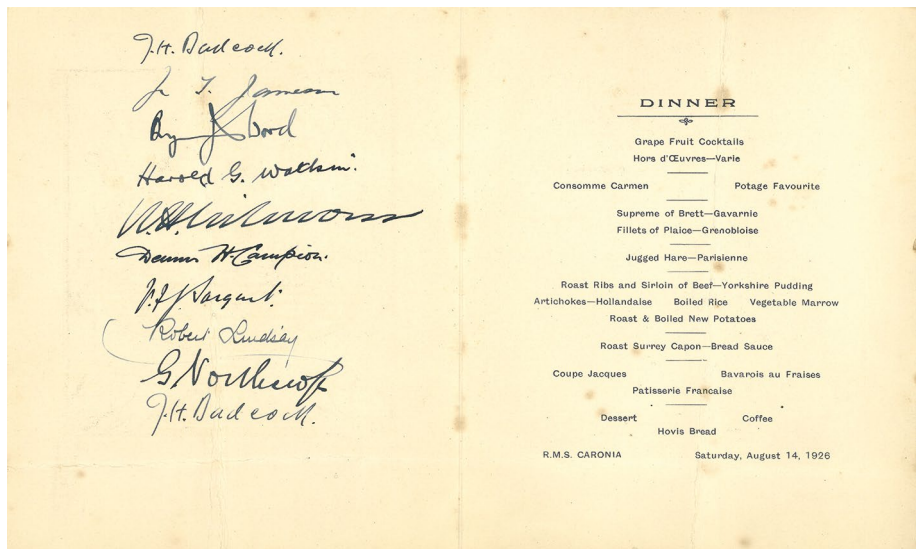 J.H. Badcock.
J. T. Jameson
Bryan J. Wood
Harold G. Watkin.
Dennis H. Campion.
Sargent.
Robert Lindsay
G Northcroft
J.H. Badcock.
DINNER
Grape Fruit Cocktails
Hors d'Œuvres—Varie
Consomme Carmen Potage Favourite
Supreme of Brett—Gavarnie
Fillets of Plaice—Grenobloise
Jugged Hare—Parisienne
Roast Ribs and Sirloin of Beef—Yorkshire Pudding
Artichokes—Hollandaise Boiled Rice Vegetable Marrow
Roast & Boiled New Potatoes
Roast Surrey Capon—Bread Sauce
Coupe Jacques Bavarois au Fraises
Patisserie Francaise
Dessert Coffee
Hovis Bread
R.M.S. CARONIA Saturday, August 14, 1926